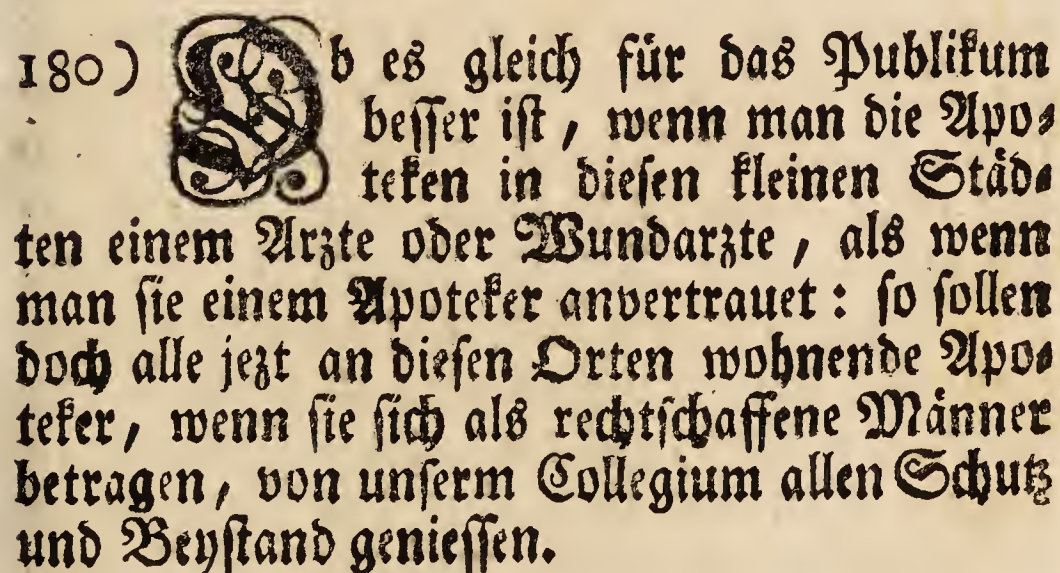 180) Ob es gleich für das Publikum
besser ist, wenn man die Apo-
teken in diesen kleinen Städ-
ten einem Arzte oder Wundarzte, als wenn
man sie einem Apoteker anvertrauet: so sollen
doch alle jezt an diesen Orten wohnende Apo-
teker, wenn sie sich als rechtschaffene Männer
betragen, von unserm Collegium allen Schutz
und Beystand geniessen.